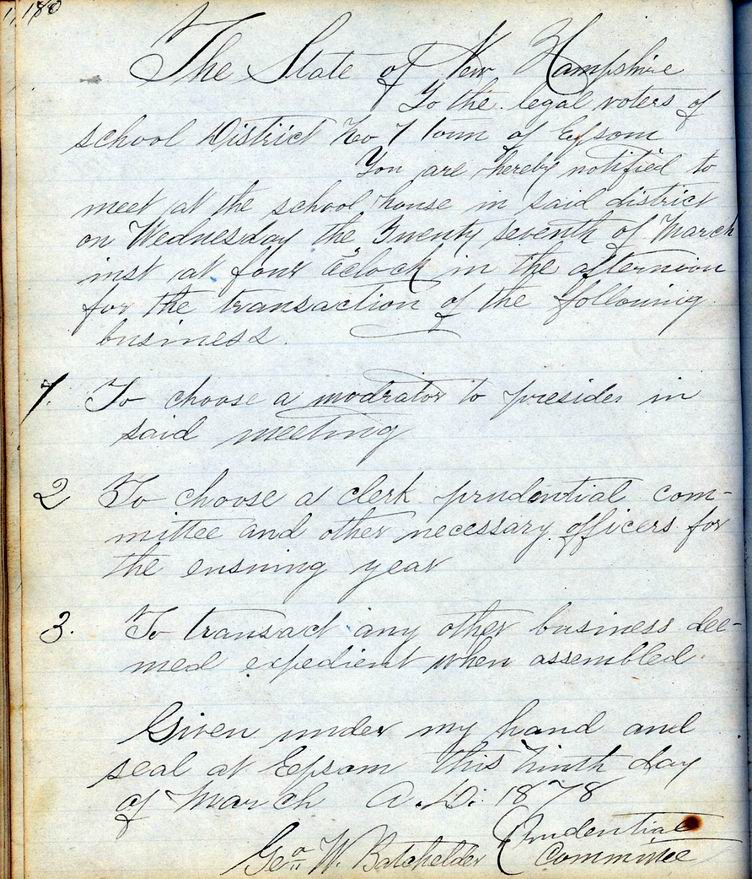 180
The State of New Hampshire
To the legal voters of
school District No 7 Town of Epsom
You are hereby notified to
meet at the school house in said district
on Wednesday the Twenty seventh of March
inst at four O'clock in the afternoon
for the transaction of the following
business.
1. To choose a modrator to presides in
said meeting
2 To choose a clerk prudential com-
mittee and other necessary officers for
the ensuing year
3. To transact any other business dee-
med expedient when assembled.
Given under my hand and
seal at Epsom this ninth day
of March A.D. 1878
Geo W. Batchelder Prudential
Committee